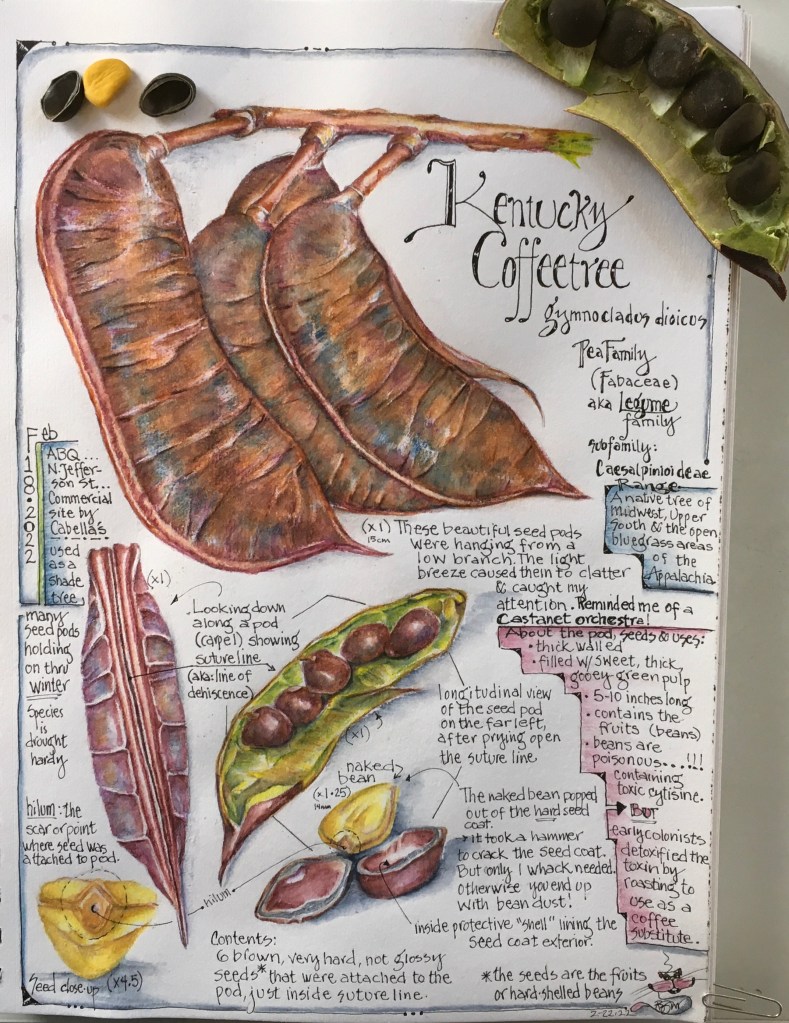 Kentucky
Coffeetree
gymnoclados dioicos
Pea Family
(Fabaceae)
aka Legume
family
subfamily:
Caesalpinioideae
Range
A native tree of
Midwest, Upper
South & the open
bluegrass areas
of the
Appalachia
Feb
18·2022
ABQ...
N. Jeffer-
son St...
Commercial
site by
Cabella's
used
as a
shade
tree
many
seed pods
holding
on thru
winter
Species
is
drought
hardy
hilum: the
scar or point
where seed was
attached to pod.
Seed close-up (x4.5)
(x1)
15cm
These beautiful seed pods
were hanging from a
low branch. The light
breeze caused them to clatter
& caught my
attention. Reminded me of a
Castanet orchestra!
(x1)
Looking down
along a pod
(carpel) showing
suture line
(aka: line of
dehiscence)
longitudinal view
of the seed pod
on the far left,
after prying open
the suture line
(x1)
naked
bean
(x1.25)
14mm
The naked bean popped
out of the hard seed
coat.
it took a hammer
to crack the seed coat.
But only 1 whack needed.
otherwise you end up
with bean dust!
hilum
inside protective "shell" lining the
seed coat exterior.
About the pod, seeds & uses:
• thick walled
• filled w/ sweet, thick,
gooey green pulp
• 5-10 inches long
• contains the
fruits (beans)
• beans are
poisonous....!!!
containing
toxic cytisine.
BUT
early colonists
detoxified the
toxin by
roasting to
use as a
coffee
substitute.
Contents:
6 brown, very hard, not glossy
seeds* that were attached to the
pod, just inside suture line.
*the seeds are the fruits
or hard-shelled beans